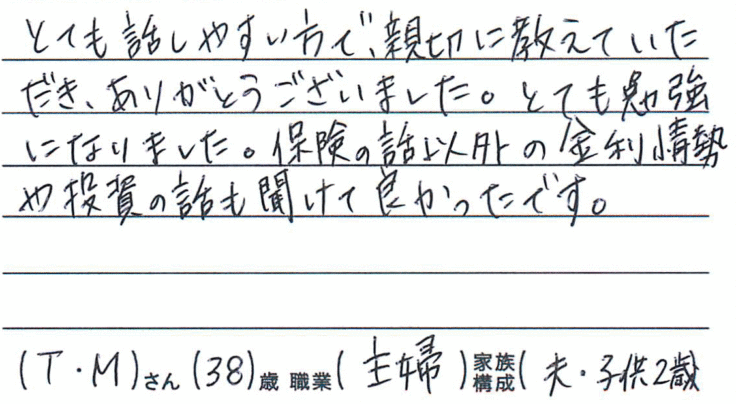 とても話しやすい方で、親切に教えていた
だき、ありがとうございました。とても勉強
になりました。保険の話以外の金利情勢
や投資の話も聞けて良かったです。
(T・M)さん(38)歳 職業(主婦)家族構成(夫・子供2歳